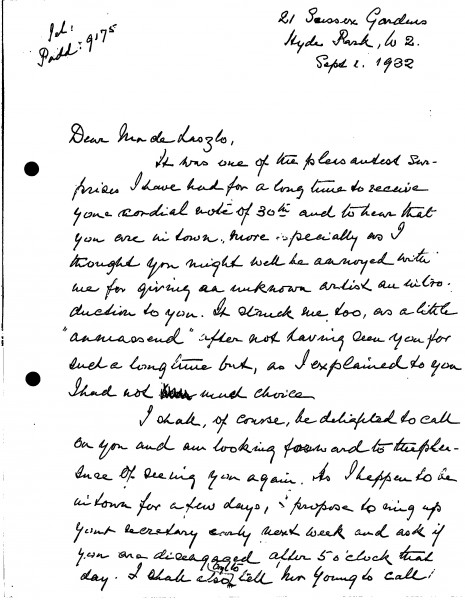 Tel:
Padd: 9175
21 Sussex Gardens
Hyde Park, W 2.
Sept 2. 1932
Dear Mr de Laszlo,
It was one of the pleasantest sur-
prises I have had for a long time to receive
your cordial note of 30th and to hear that
you are in town, more especially as I
thought you might well be annoyed with
me for giving an unknown artist an intro-
duction to you. It struck me too, as a little
"anmassend" after not having seen you for
such a long time but, as I explained to you
I had not much choice
I shall, of course, be delighted to call
on you and am looking forward to the plea-
sure of seeing you again. As I happen to be
in town for a few days, I propose to ring up
your secretary early next week and ask if
you are disengaged after 5 o'clock that
day. I shall also tell Mr Young to call